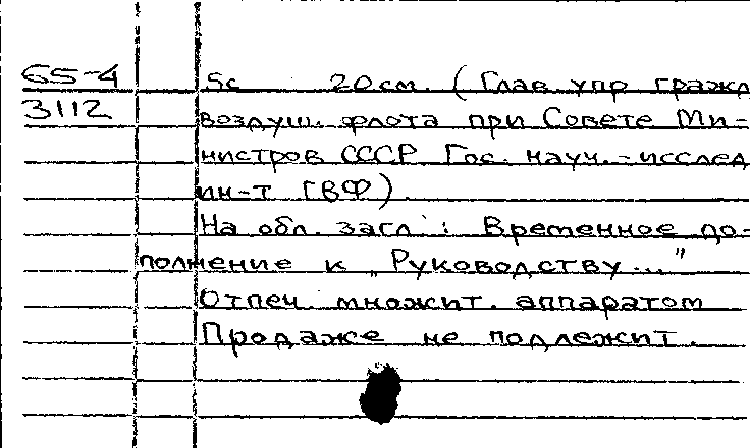 65-4 5с 20см. (Глав. упр. гражд.
3112 воздуш. флота при Совете Ми-
нистров СССР. Гос. науч.-исслед.
ин-т ГВФ).
На обл. загл.: Временное до-
полнение к „Руководству..."
Отпеч. множит. аппаратом
Продаже не подлежит.